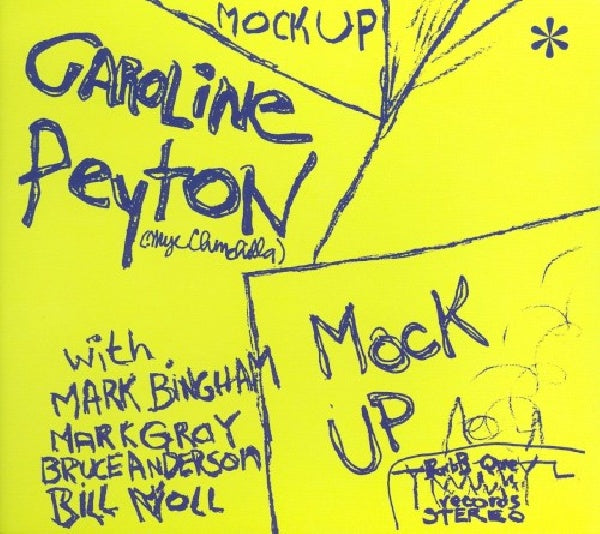 MOCKUP
*
CAROLINE
PEYTON
with
MARK BINGHAM
MARK GRAY
BRUCE ANDERSON
BILL NOLL
MOCK
UP
BaR B Que
records
STEREO